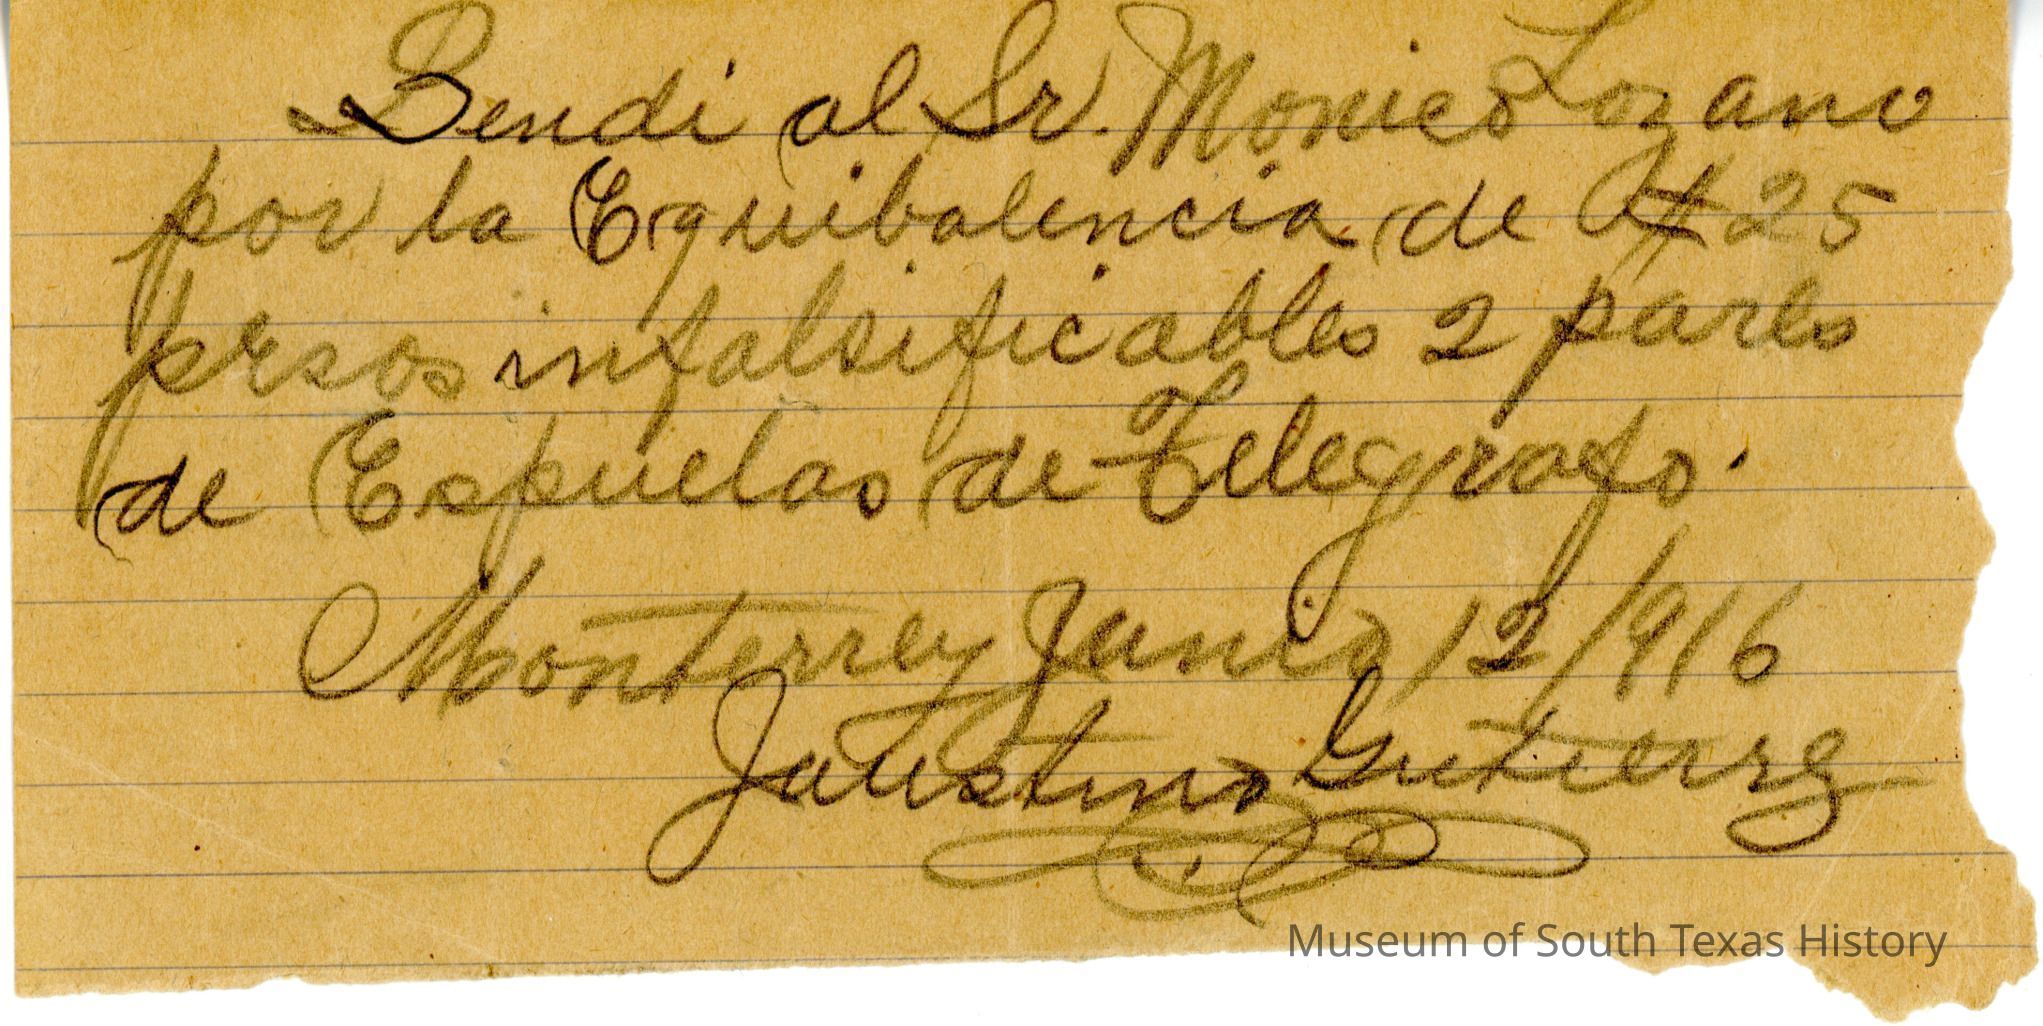 Bendi al Sr. Monico Lozano
por la Equibalencia de $25
pesos infalsificables 2 pares
de Espuelas de Telegrafo.
Monterrey Junio 12/916
Faustino Gutierrez
Museum of South Texas History